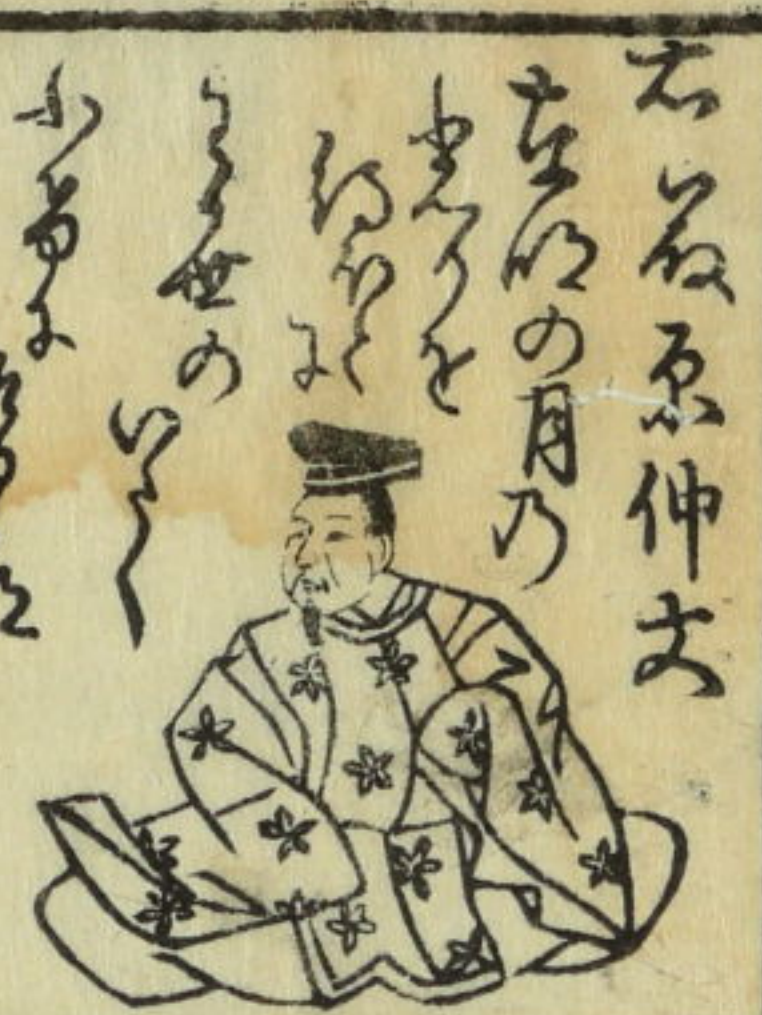 右 藤原仲文
有明の月乃
ひかりを
待ほと
に
わか世の
いたく
ふけに